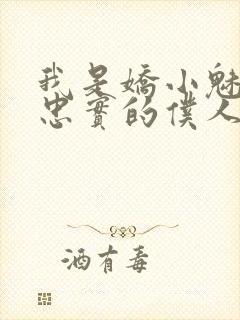 我是嬌小魅
忠實的僕人
酒有毒